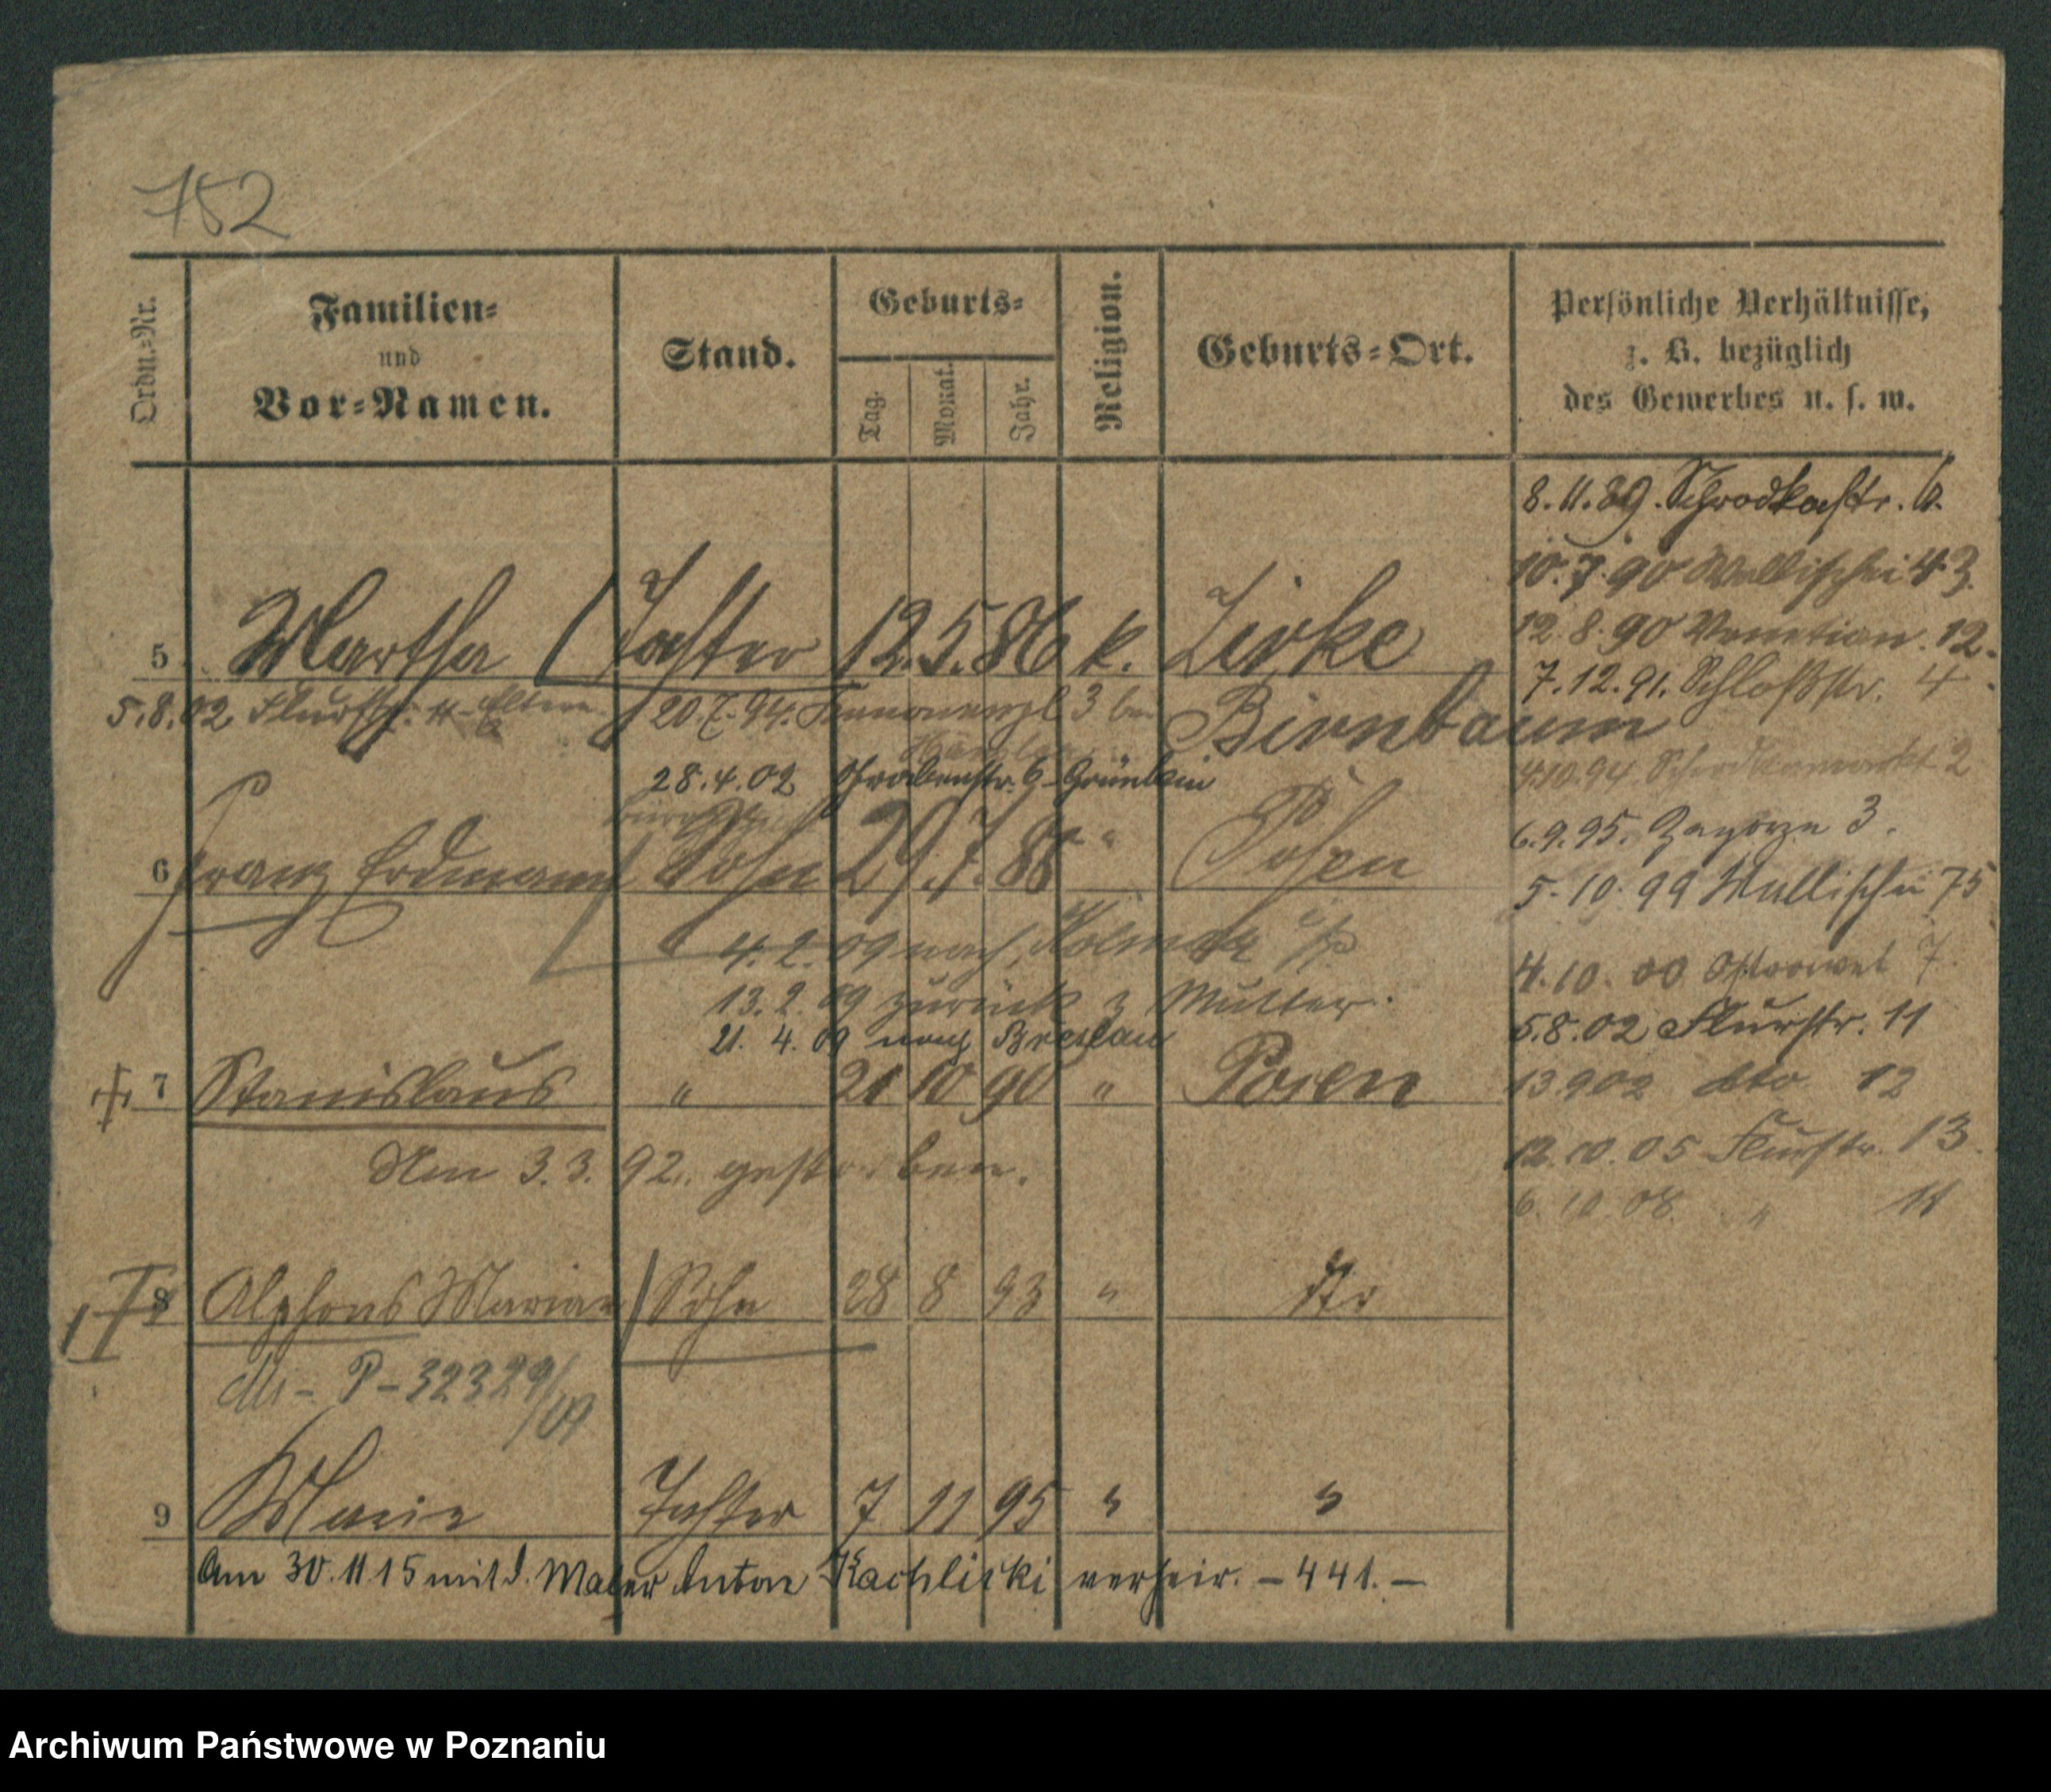 752
Ordn.-Nr.
Familien-
und
Vor-Namen.
Stand.
Geburts-
Tag.
Monat.
Jahr.
Religion.
Geburts-Ort.
Persönliche Verhältnisse,
z. B. bezüglich
des Gewerbes u. s. w.
8.11.89. Schrodkastr. 6.
10.7.90 Wallischei 43.
12.8.90 Venetian. 12.
7.12.91. Schloßstr. 4
4.10.94 Schrodkamarkt 2
6.9.95. Zagorze 3.
5.10.99 Wallischei 75
4.10.00 Ostrowek 7
5.8.02 Flurstr. 11
13.9.02 dto 12
12.10.05 Flurstr. 13
6.10.08. " 11
5 Martha Tochter 12.5.86 k. Zirke
Birnbaum
5.8.02. Flurstr. 11 Eltern 20.7.94. 3 bei
28.4.02 Grabenstr. 6
6 Franz Erdmann Sohn 29.7.88 " Posen
4.2.09 nach Kolmar i/P
13.2.09 zurück z Mutter.
21.4.09 nach Breslau
7 Stanislaus " 21 10 90 " Posen
Am 3.3.92. gestorben.
8 Alphons Marian Sohn 28 8 93 " dto
P-32329/09
9 Marie Tochter 7 11 95 " "
Am 30.11.15 mit d. Maler Anton Kachlicki verheir. – 441. –
Archiwum Państwowe w Poznaniu